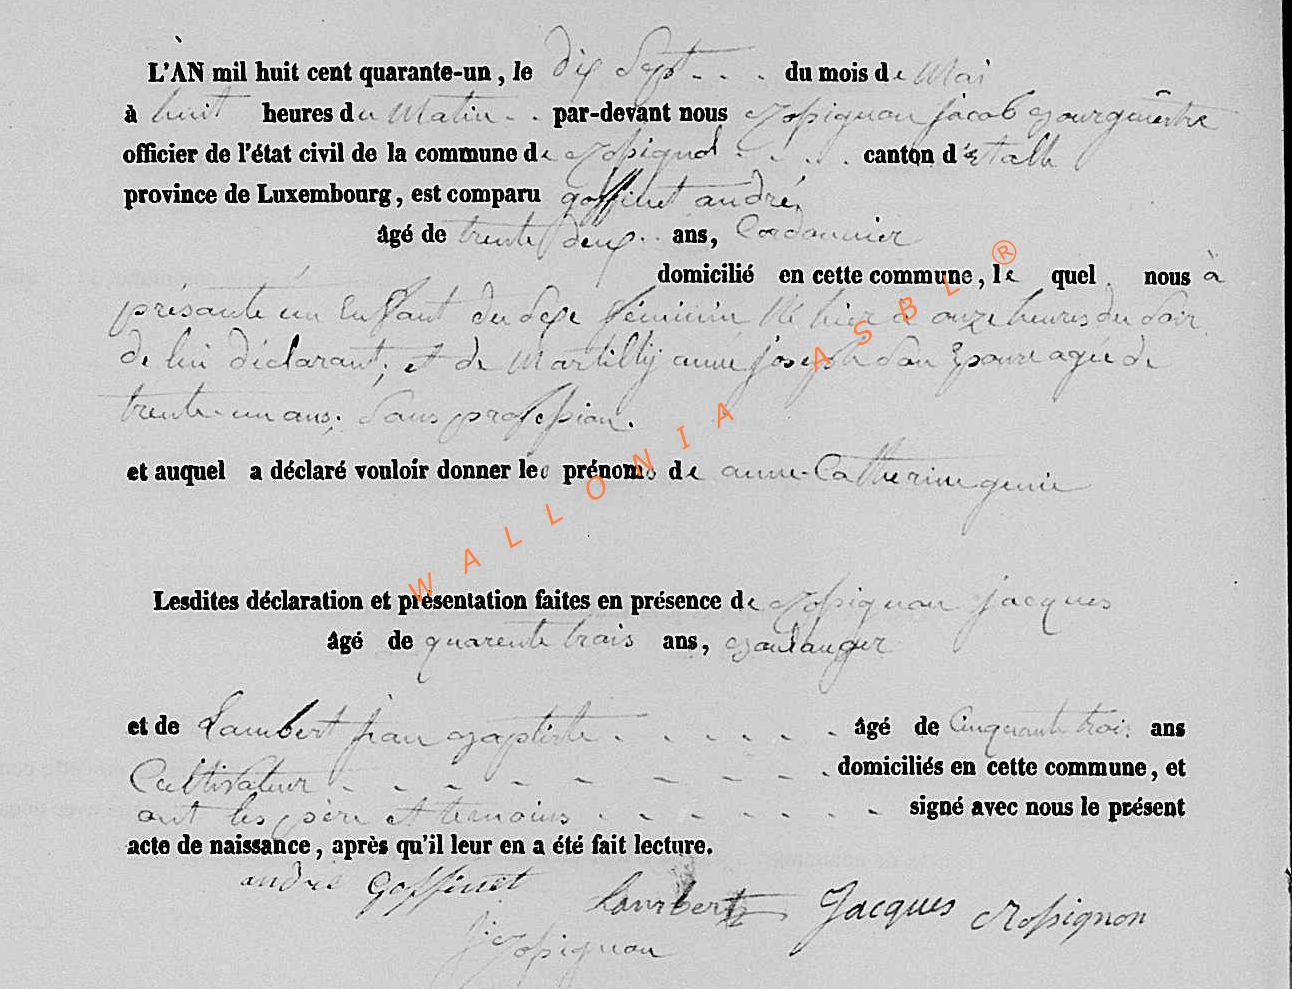 L'AN mil huit cent quarante-un, le dix sept - - - du mois de Mai
à huit heures du Matin - - par-devant nous Rossignon jacob Bourguestre
officier de l'état civil de la commune de Rossignol - - - - canton d'Etalle
province de Luxembourg, est comparu goffinet andré,
âgé de trente deux - - ans, Cordonnier
domicilié en cette commune, le quel nous à
présanté un Enfant du Sexe féminin Né hier à onze heures du Soir
de lui déclarant, et de Martilly anne joseph Son Epouse agée de
trente-un ans, Sans profession.
et auquel a déclaré vouloir donner les prénoms de anne-Catherine genie
Lesdites déclaration et présentation faites en présence de Rossignon jacques
âgé de quarente trois ans, Boulanger
et de Lambert jean Baptiste - - - - - - âgé de Cinquante trois ans
Cultivateur - - - - - - - - domiciliés en cette commune, et
ont les père et temoins - - - - - - - signé avec nous le présent
acte de naissance, après qu'il leur en a été fait lecture.
andré Goffinet Lambert Jacques Rossignon
j Rossignon
WALLONIA ASBL ®